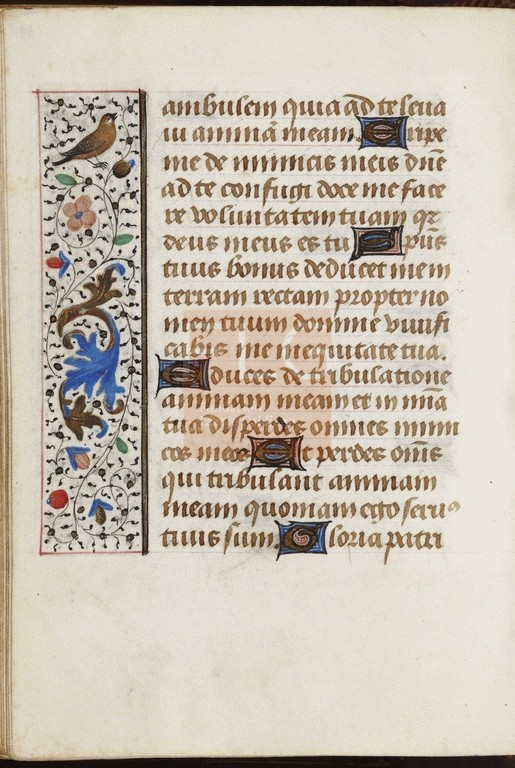 ambulem quia ad te leua
ui animā meam Eripe
me de inimicis meis dn̄e
ad te confugi doce me face
re voluntatem tuam qr
deus meus es tu Spūs
tuus bonus deducet me in
terram rectam propter no
men tuum domine viuifi
cabis me in equitate tua.
Educes de tribulatione
animam meam et in mīa
tua disperdes omnes inimi
cos meos Et perdes om̄s
qui tribulant animam
meam quoniam ego seruꝰ
tuus sum Gloria patri